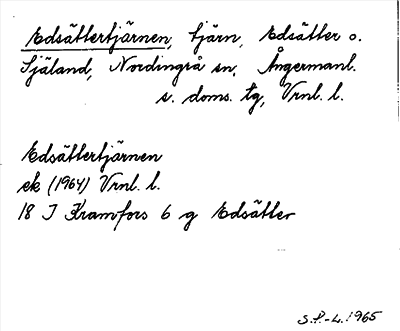 Edsättertjärnen, tjärn, Edsätter o.
Själand, Nordingrå sn, Ångermanl.
s. doms. tg, Vrnl. l.
Edsättertjärnen
ek (1964) Vrnl. l.
18 I Kramfors 6 g Edsätter
S.P.-L. 1965